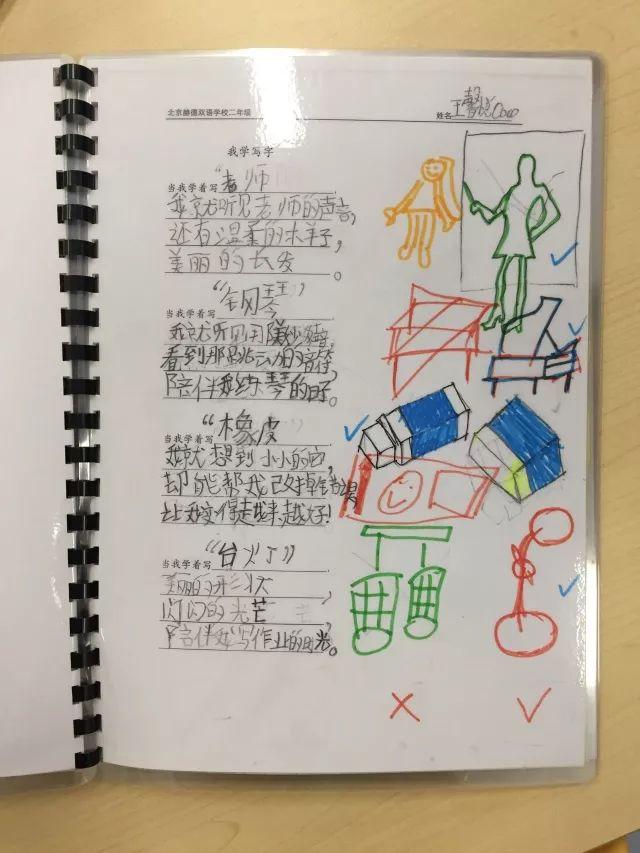 北京赫德双语学校二年级
姓名 王馨 Coco
我学写字
当我学着写“老师”
我就听见老师的声音,
还有温柔的样子,
美丽的长发。
当我学着写“钢琴”
我就听见用美妙声音,
看到那跳动的音符,
陪伴我练琴的日子。
当我学着写“橡皮”
我就想到小小的它,
却能帮我改掉错误,
让我变得越来越好!
当我学着写“台灯”
美丽的形状,
闪闪的光芒
陪伴我写作业的时光。